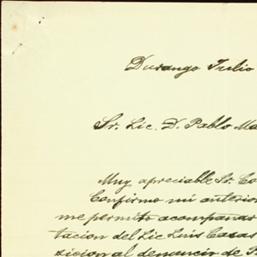 Durango Julio
Sr. Lic. D. Pablo Ma
Muy apreciable Sr. Co
Confirmo mi anterio
me permito acompañar
tacion del Lic Luis Casas
sicion al denuncio de